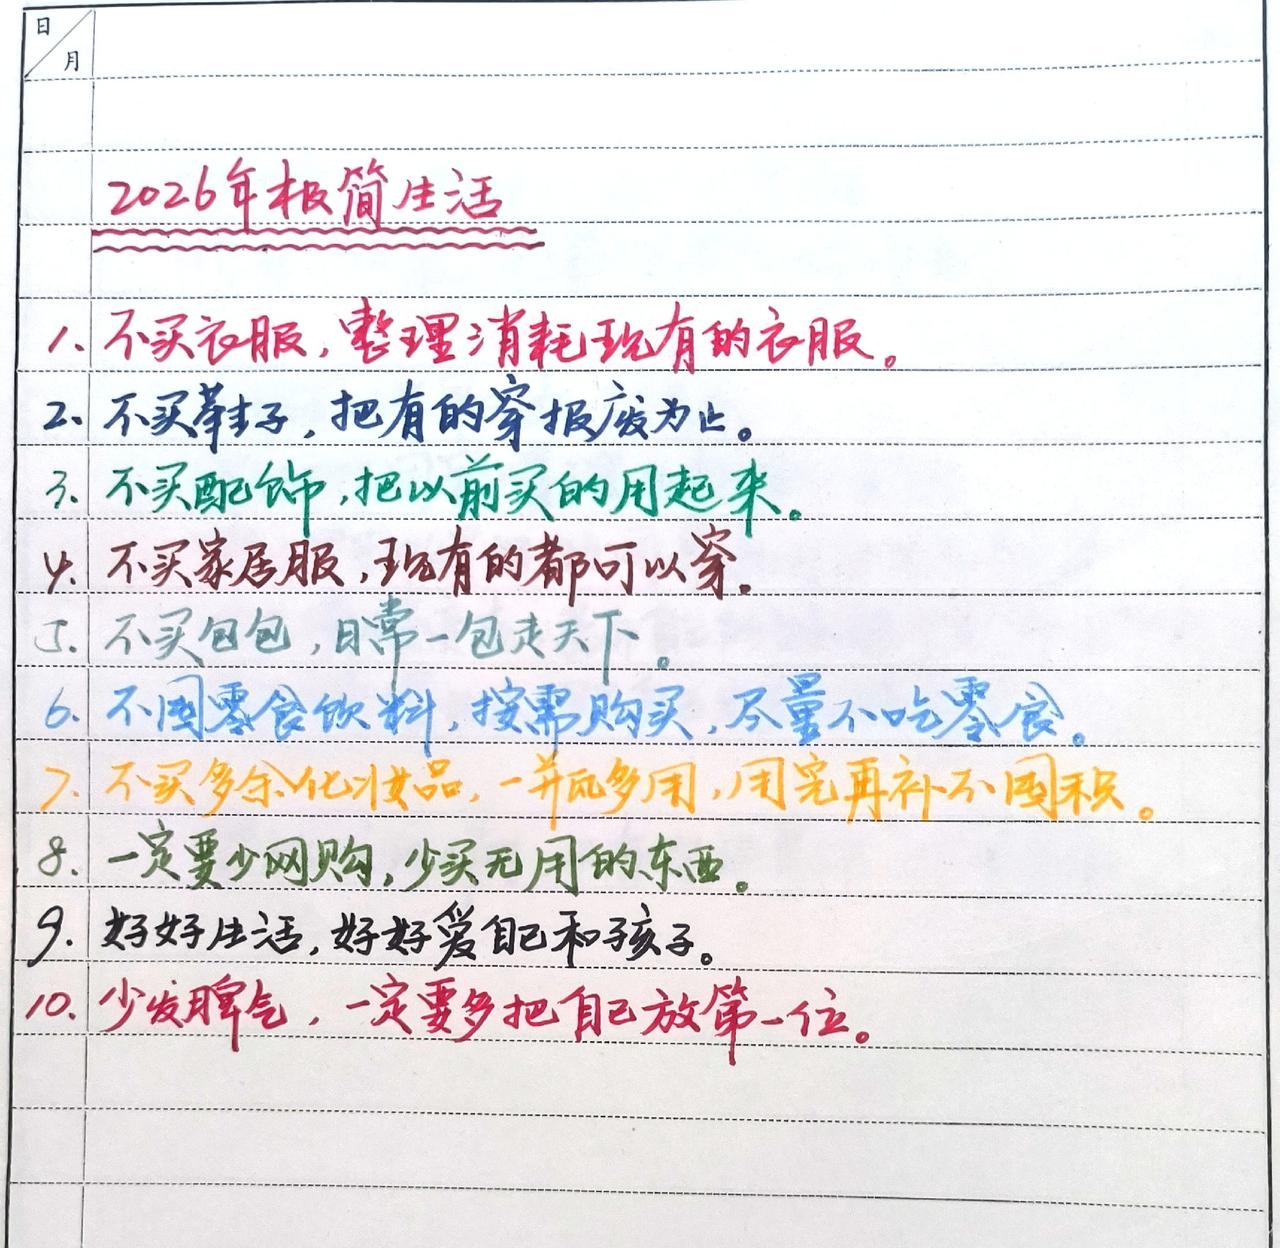 日
月
2026年极简生活
1. 不买衣服,整理消耗现有的衣服。
2、不买鞋子,把有的穿报废为止。
3. 不买配饰,把以前买的用起来。
4. 不买家居服,现有的都可以穿。
5. 不买包包,日常一包走天下。
6. 不囤零食饮料,按需购买,尽量不吃零食。
7. 不买多余化妆品,一瓶多用,用完再补不囤积。
8. 一定要少网购,少买无用的东西。
9. 好好生活,好好爱自己和孩子。
10. 少发脾气,一定要多把自己放第一位。